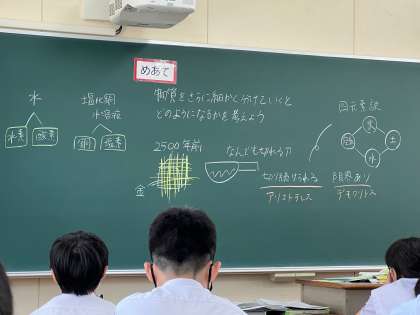 めあて
物質をさらに細かく分けていくと
どのようになるかを考えよう
水
水素 酸素
塩化銅
水溶液
銅 塩素
2500年前
金
なんでも切れる刀
切り続けられる
アリストテレス
限界あり
デモクリトス
四元素説
火
土
水